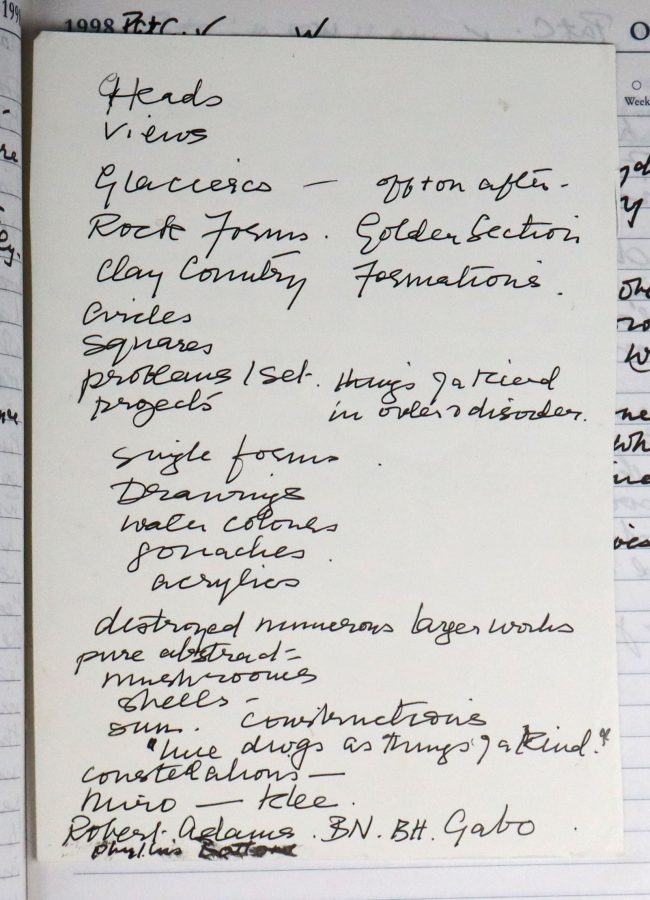 1998
Heads
Views
Glaciers — off + on after -
Rock Forms. Golden Section
Clay Country Formations.
Circles
Squares
problems / set. things of a kind
projects in order & disorder.
single forms.
Drawings
water colours
gouaches.
acrylics
destroyed numerous larger works
pure abstract =
mushrooms
shells -
sun. constructions
"line drogs as things of a kind."
constellations —
Miro — Klee.
Robert Adams. BN. BH. Gabo.
Phyllis Bottome
O
Week